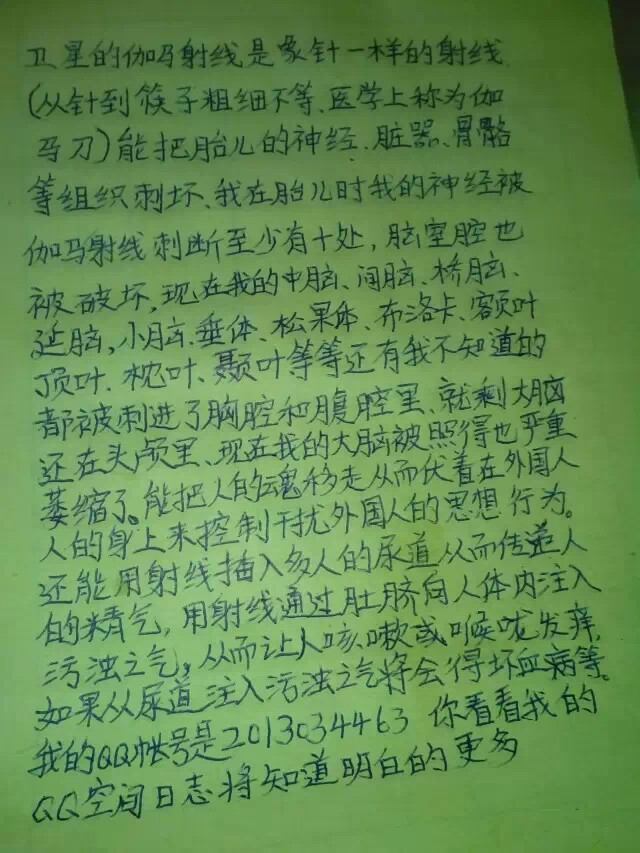 卫星的伽玛射线是象针一样的射线
(从针到筷子粗细不等、医学上称为伽
马刀)能把胎儿的神经、脏器、骨骼
等组织刺坏、我在胎儿时我的神经被
伽玛射线刺断至少有十处，脑室腔也
被破坏，现在我的中脑、间脑、桥脑、
延脑，小脑、垂体、松果体、布洛卡、客页叶
顶叶、枕叶、颞叶等等还有我不知道的
都被刺进了胸腔和腹腔里、就剩大脑
还在头颅里、现在我的大脑被照得也严重
萎缩了。能把人的魂移走从而伏着在外国人
人的身上来控制干扰外国人的思想行为。
还能用射线插入多人的尿道从而传递人
的精气，用射线通过肚脐向人体内注入
污浊之气，从而让人咳、嗽或喉咙发痒，
如果从尿道注入污浊之气将会得坏血病等。
我的QQ帐号是2013034463 你看看我的
QQ空间日志将知道明白的更多